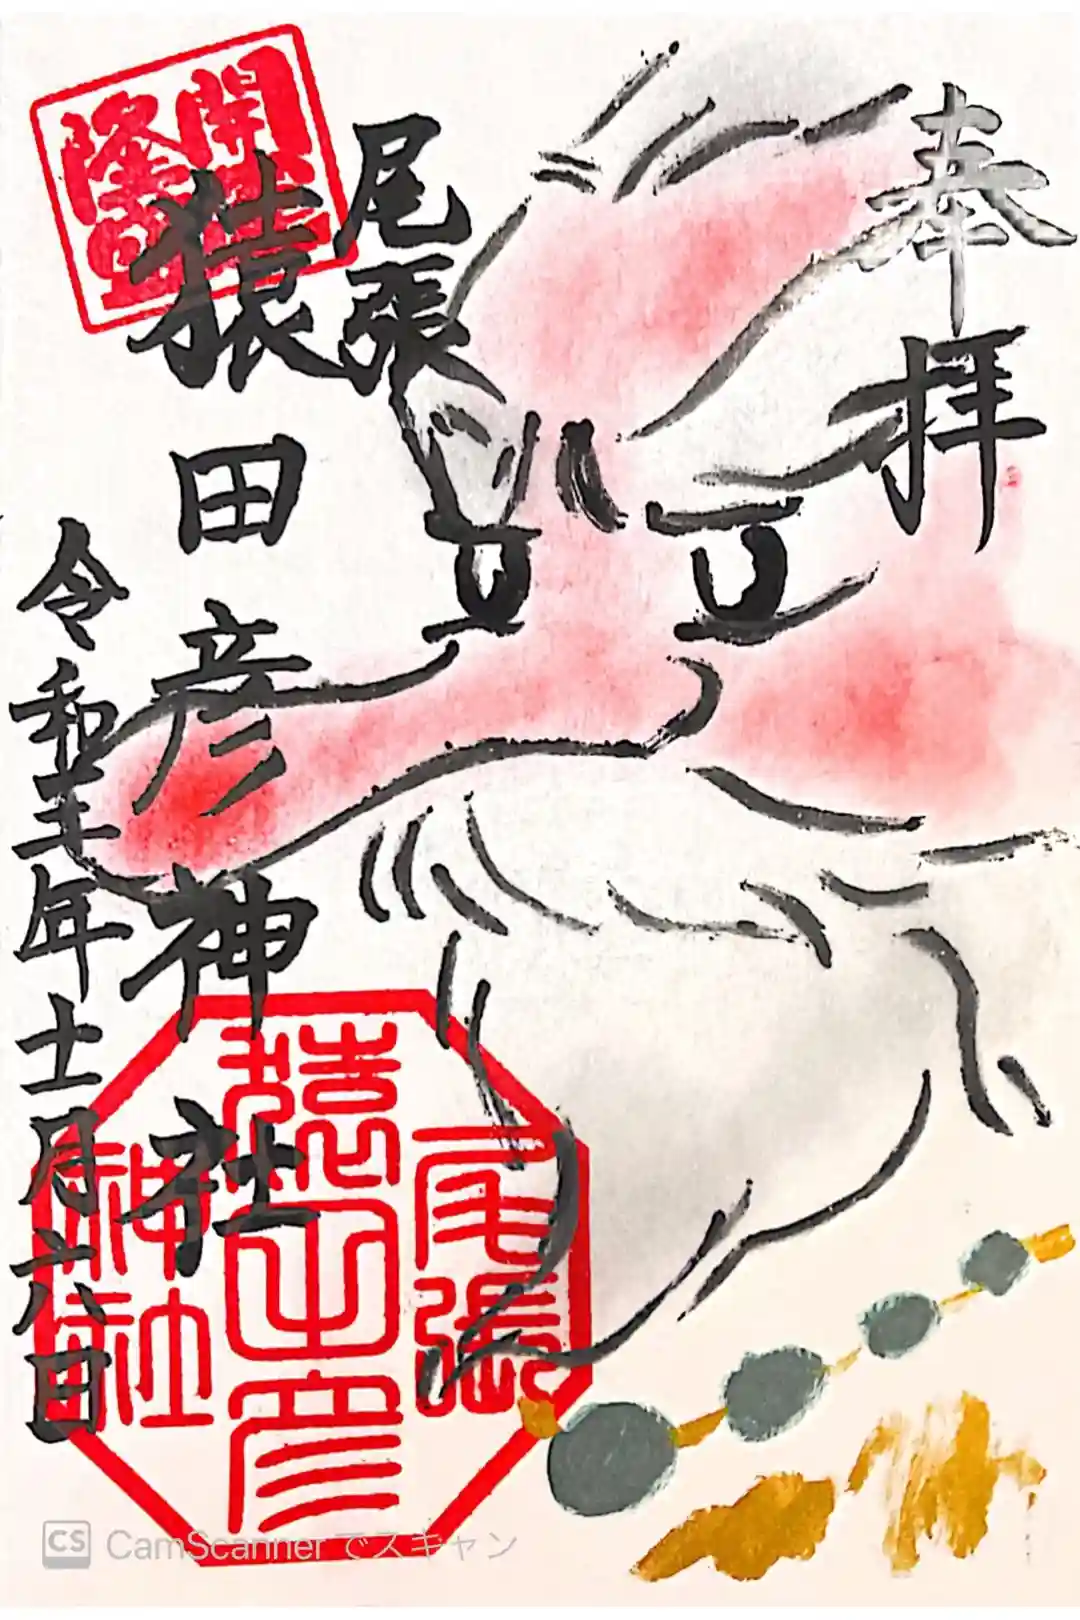 奉拝
尾張
猿田彦神社
令和五年十一月二八日
開運
隆昌
尾張
猿田彦
神社
CS CamScanner でスキャン